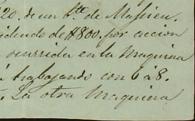 20. de un
dendo de $800. por accion
ocurrida en la Maquina
trabajando con 6 a 8.
La otra maquina